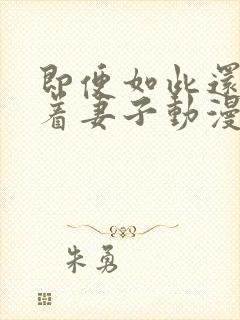 即便如此還
着妻子動漫
朱勇